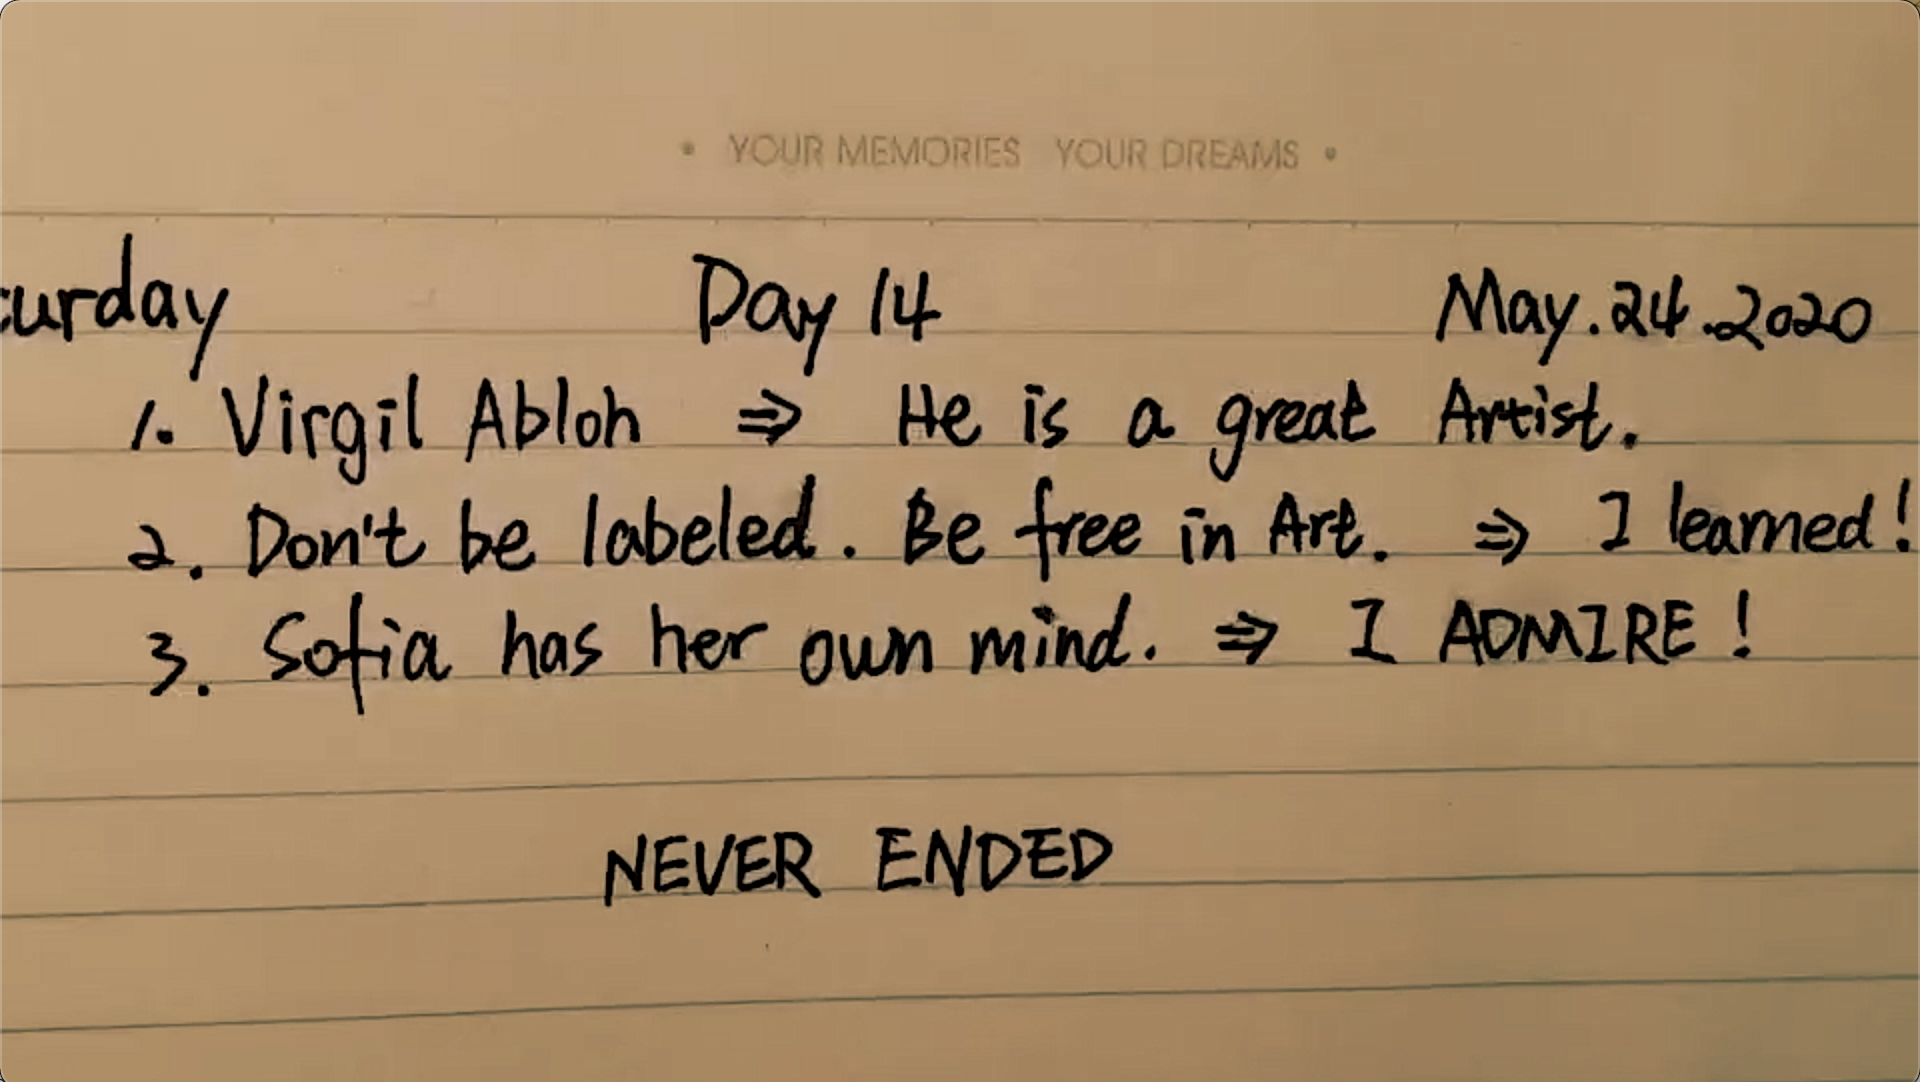 • YOUR MEMORIES YOUR DREAMS •
turday Day 14 May.24.2020
1. Virgil Abloh ⇒ He is a great Artist.
2. Don't be labeled. Be free in Art. ⇒ I learned!
3. Sofia has her own mind. ⇒ I ADMIRE!
NEVER ENDED